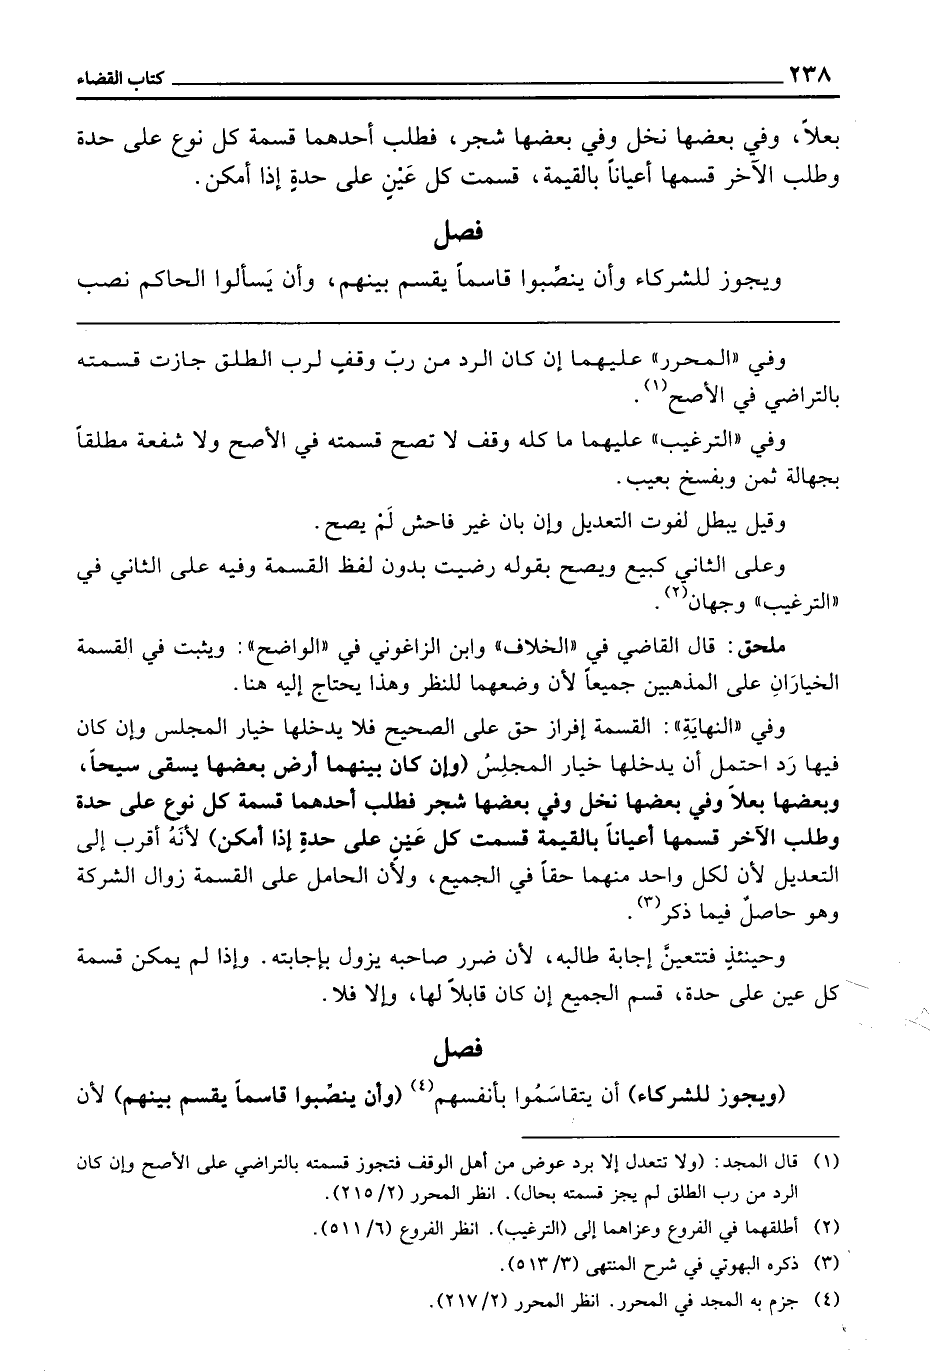 ٢٣٨ كتاب القضاء
بعلاً، وفي بعضها نخل وفي بعضها شجر، فطلب أحدهما قسمة كل نوع على حدة
وطلب الآخر قسمها أعياناً بالقيمة، قسمت كل عَيْنٍ على حدةٍ إذا أمكن.
فصل
ويجوز للشركاء وأن ينصِّبوا قاسماً يقسم بينهم، وأن يَسألوا الحاكم نصب
وفي «المحرر» عليهما إن كان الرد من ربّ وقفٍ لرب الطلق جازت قسمته
بالتراضي في الأصح(١).
وفي «الترغيب» عليهما ما كله وقف لا تصح قسمته في الأصح ولا شفعة مطلقاً
بجهالة ثمن وبفسخ بعيب.
وقيل يبطل لفوت التعديل وإن بان غير فاحش لَمْ يصح.
وعلى الثاني كبيع ويصح بقوله رضيت بدون لفظ القسمة وفيه على الثاني في
«الترغيب» وجهان(٢).
ملحق: قال القاضي في «الخلاف» وابن الزاغوني في «الواضح»: ويثبت في القسمة
الخيارَانِ على المذهبين جميعاً لأن وضعهما للنظر وهذا يحتاج إليه هنا.
وفي «النهايَةِ»: القسمة إفراز حق على الصحيح فلا يدخلها خيار المجلس وإن كان
فيها رَد احتمل أن يدخلها خيار المجلسُ (وإن كان بينهما أرض بعضها يسقى سيحاً،
وبعضها بعلاً وفي بعضها نخل وفي بعضها شجر فطلب أحدهما قسمة كل نوع على حدة
وطلب الآخر قسمها أعياناً بالقيمة قسمت كل عَيْنٍ على حدةٍ إذا أمكن) لأنَهُ أقرب إلى
التعديل لأن لكل واحد منهما حقاً في الجميع، ولأن الحامل على القسمة زوال الشركة
وهو حاصلٌ فيما ذكر(٣).
وحينئذٍ فتتعينَّ إجابة طالبه، لأن ضرر صاحبه يزول بإجابته. وإذا لم يمكن قسمة
كل عين على حدة، قسم الجميع إن كان قابلاً لها، وإلا فلا.
فصل
(ويجوز للشركاء) أن يتقاسَمُوا بأنفسهم(٤) (وأن ينصِّبوا قاسماً يقسم بينهم) لأن
(١) قال المجد: (ولا تتعدل إلا برد عوض من أهل الوقف فتجوز قسمته بالتراضي على الأصح وإن كان
الرد من رب الطلق لم يجز قسمته بحال). انظر المحرر (٢/٢١٥).
(٢) أطلقهما في الفروع وعزاهما إلى (الترغيب). انظر الفروع (٦/٥١١).
(٣) ذكره البهوتي في شرح المنتهى (٣/٥١٣).
(٤) جزم به المجد في المحرر. انظر المحرر (٢/٢١٧).